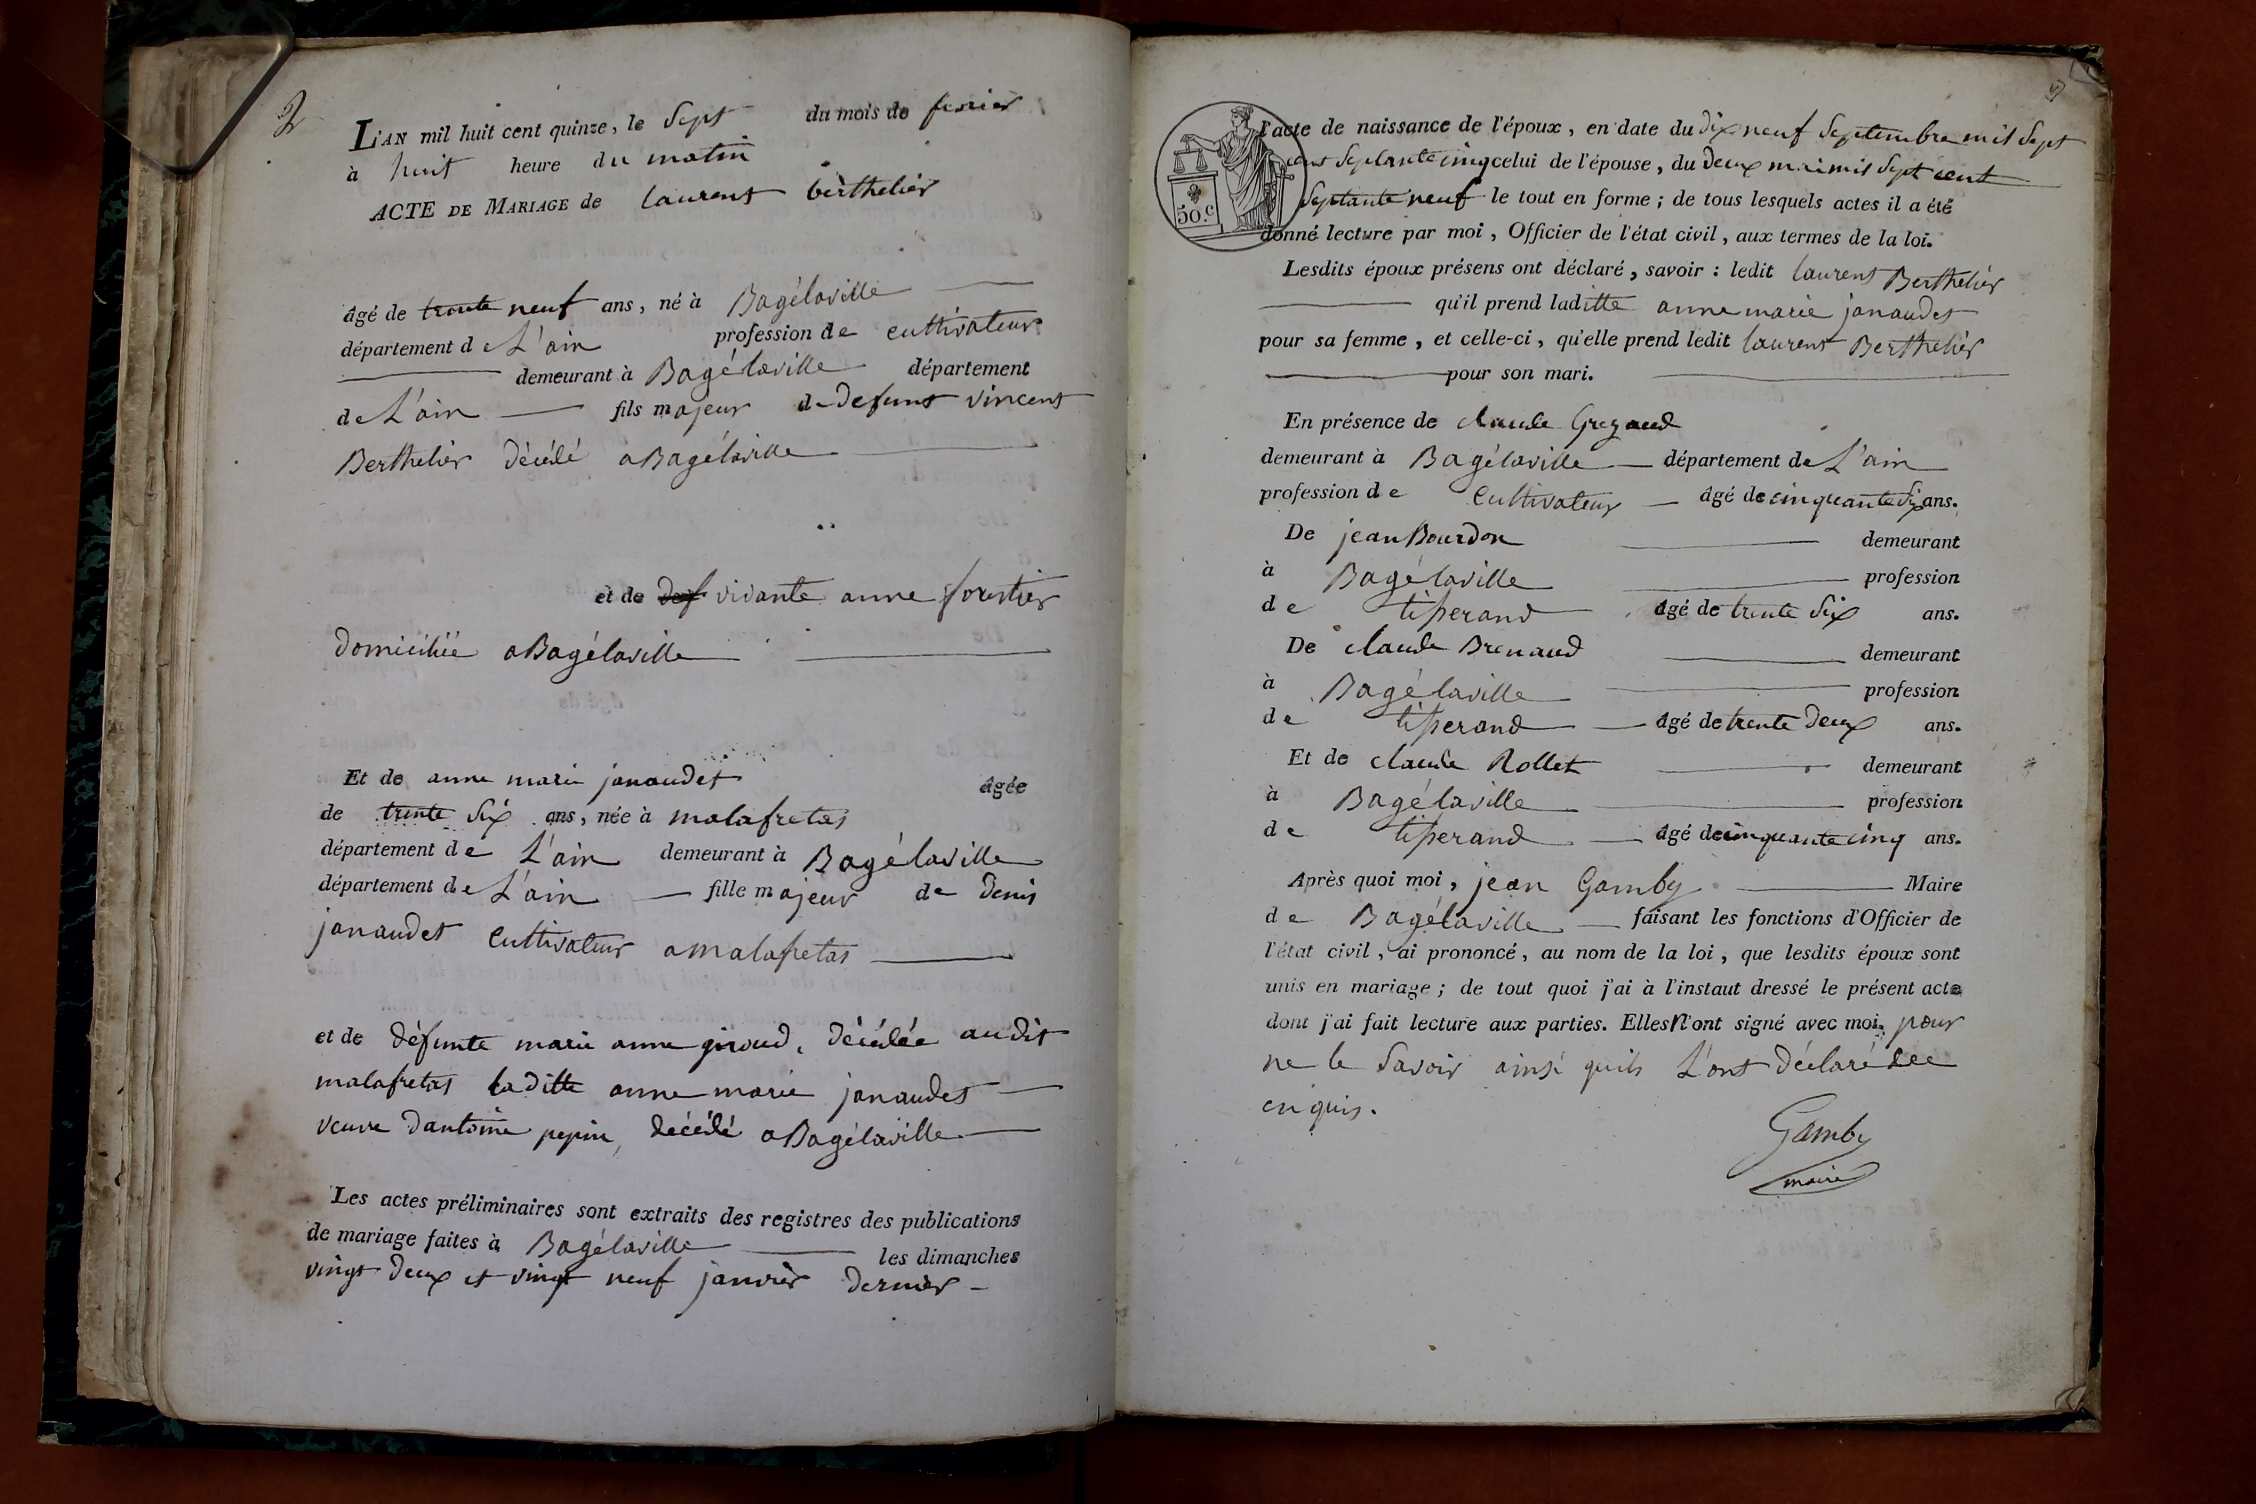 2
L'AN mil huit cent quinze, le Sept du mois de fevrier
à huit heure du matin
ACTE DE MARIAGE de laurent berthelier
âgé de trente neuf ans, né à Bagélaville
département de L'ain profession de cultivateur
demeurant à Bagélaville département
de L'ain fils majeur de defunt vincent
Berthelier décédé a Bagélaville
et de def vivante anne forestier
domiciliée a Bagélaville
Et de anne marie janaudet âgée
de trente Six ans, née à malafretas
département de L'ain demeurant à Bagélaville
département de L'ain fille majeur de Denis
janaudet cultivateur a malafretas
et de défunte marie anne giroud, décédée audit
malafretas laditte anne marie janaudet
veuve dantoine pepin, décédé a Bagélaville
Les actes préliminaires sont extraits des registres des publications
de mariage faites à Bagélaville les dimanches
vingt deux et vingt neuf janvier dernier
50.c
l'acte de naissance de l'époux, en date du dix neuf Septembre mil Sept
cent Septante cinq celui de l'épouse, du deux mai mil Sept cent
Septante neuf le tout en forme; de tous lesquels actes il a été
donné lecture par moi, Officier de l'état civil, aux termes de la loi.
Lesdits époux présens ont déclaré, savoir : ledit laurent Berthelier
qu'il prend laditte anne marie janaudet
pour sa femme, et celle-ci, qu'elle prend ledit laurent Berthelier
pour son mari.
En présence de claude Grezaud
demeurant à Bagélaville département de L'ain
profession de Cultivateur âgé de cinquante Six ans.
De jean Bourdon demeurant
à Bagélaville profession
de tisserand âgé de trente Six ans.
De claude Brenaud demeurant
à Bagélaville profession
de tisserand âgé de trente deux ans.
Et de claude Rollet demeurant
à Bagélaville profession
de tisserand âgé de cinquante cinq ans.
Après quoi moi, jean Gamby Maire
de Bagélaville faisant les fonctions d'Officier de
l'état civil, ai prononcé, au nom de la loi, que lesdits époux sont
unis en mariage; de tout quoi j'ai à l'instaut dressé le présent acte
dont j'ai fait lecture aux parties. Elles n'ont signé avec moi, pour
ne le Savoir ainsi quils L'ont déclaré de ce
enquis.
Gamby
maire